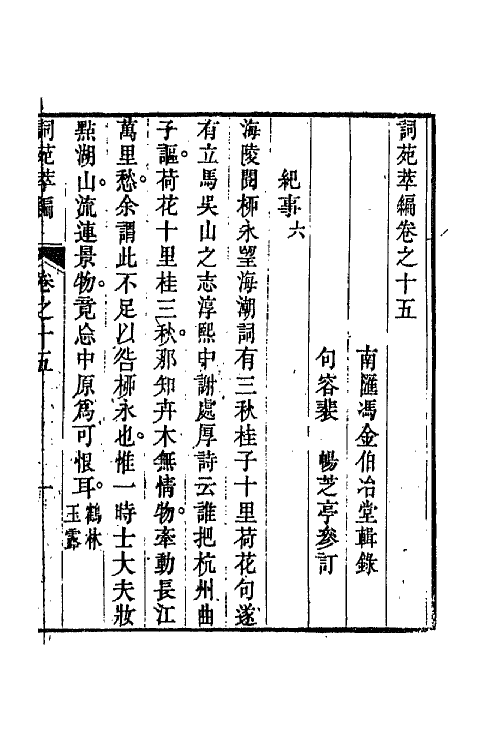 詞苑萃編卷之十五
南匯馮金伯冶堂輯錄
句容裴 暢芝亭參訂
紀事六
海陵閱柳永望海潮詞有三秋桂子十里荷花句遂
有立馬吳山之志淳熙中謝處厚詩云誰把杭州曲
子謳荷花十里桂三秋那知卉木無情物牽動長江
萬里愁余謂此不足以咎柳永也惟一時士大夫妝
點湖山流連景物竟忘中原為可恨耳鶴林
玉露
詞苑萃編 卷之十五 一